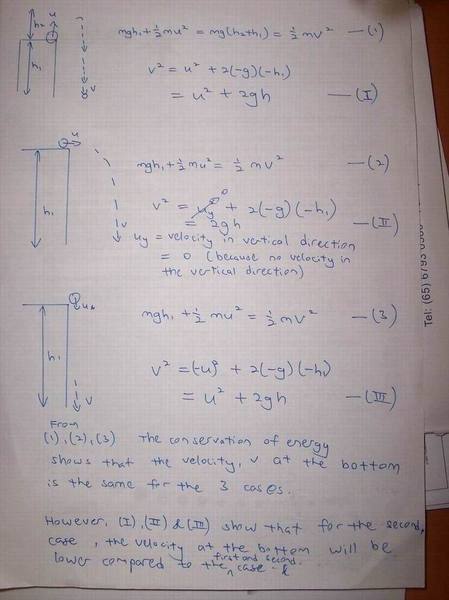 u
h₂
h₁
mgh₁ + ½mu² = mg(h₂+h₁) = ½mv² —(1)
v² = u² + 2(-g)(-h₁)
= u² + 2gh —(I)
v
u
h₁
v
mgh₁ + ½mu² = ½mv² —(2)
v² = uy² 0 + 2(-g)(-h₁)
= 2gh —(II)
uy = velocity in vertical direction
= 0 (because no velocity in
the vertical direction)
Tel: (65) 6793
u
h₁
v
mgh₁ + ½mu² = ½mv² —(3)
v² = (-u)² + 2(-g)(-h₁)
= u² + 2gh —(III)
From
(1), (2), (3) The conservation of energy
shows that the velocity, v at the bottom
is the same for the 3 cases.
However, (I), (II) & (III) show that for the second
case, the velocity at the bottom will be
lower compared to the first and second case.